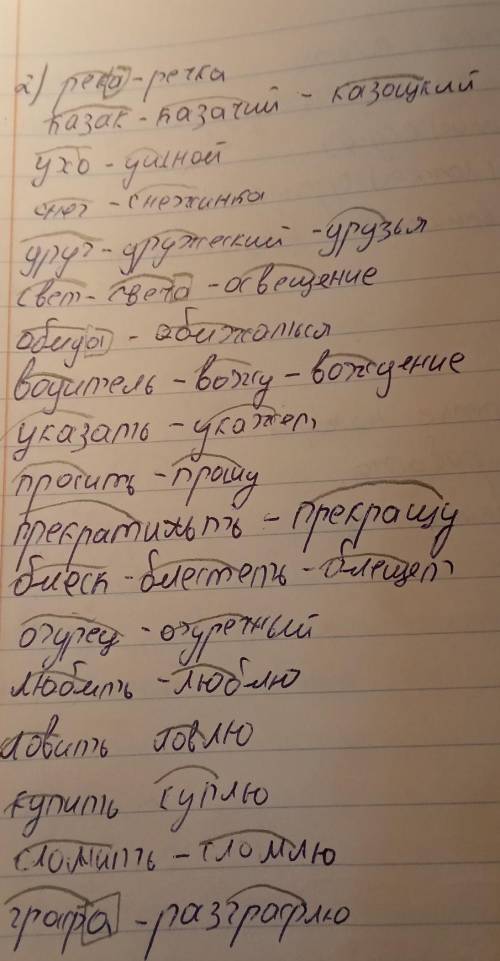 2) река - речка
казак - казачий - казацкий
ухо - ушной
снег - снежинка
друг - дружеский - друзья
свет - свеча - освещение
обида - обижаться
водитель - вожу - вождение
указать - укажет
просить - прошу
прекратить - прекращу
блеск - блестеть - блещет
огурец - огуречный
любить - люблю
ловить ловлю
купить куплю
сломить - сломлю
графа - разграфлю